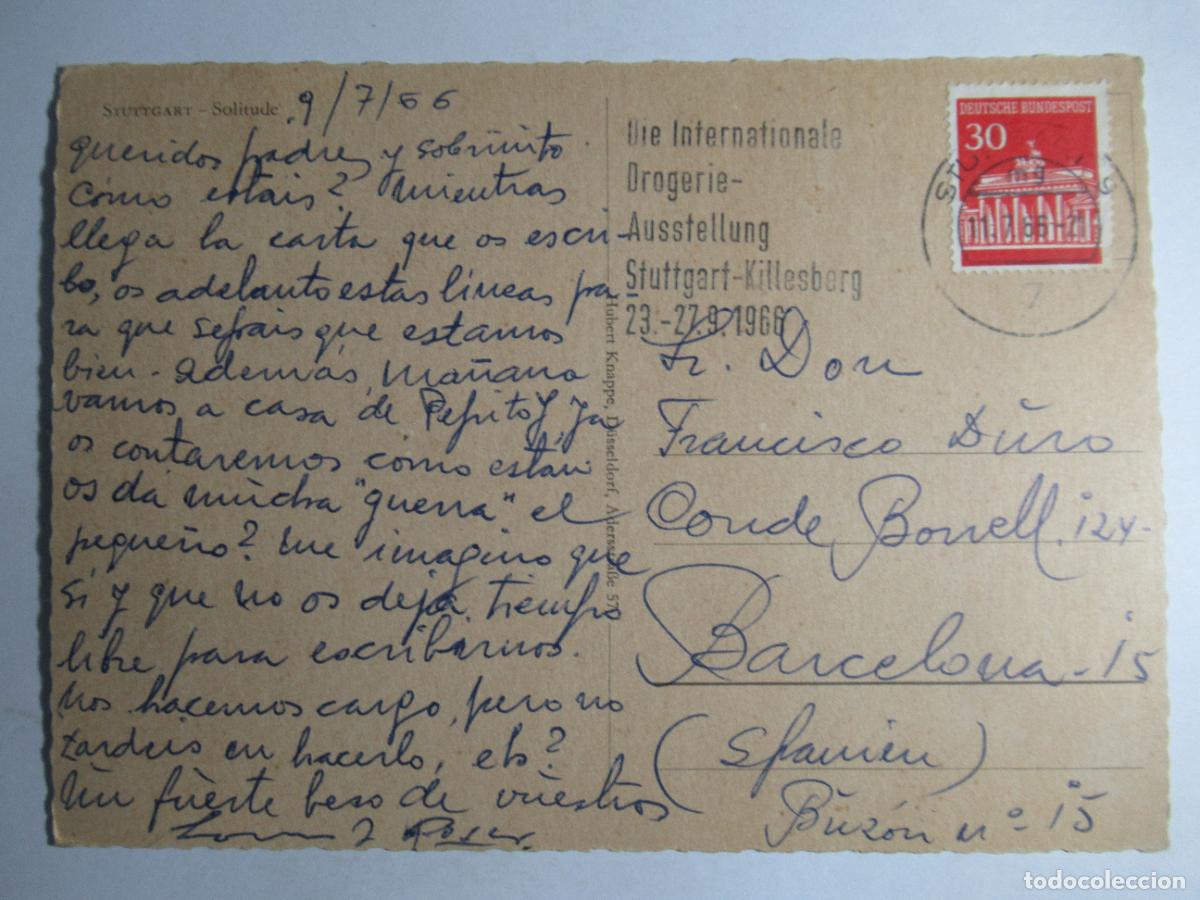 STUTTGART – Solitude 9/7/66
queridos padres y sobrinito
cómo estais? mientras
llega la carta que os escri-
bo, os adelanto estas líneas pa
ra que sepais que estamos
bien - además, mañana
vamos a casa de Pepito y ya
os contaremos como están
os da mucha "guerra" el
pequeño? me imagino que
si y que no os deja tiempo
libre para escribirnos.
nos hacemos cargo, pero no
tardeis en hacerlo, eh?
Un fuerte beso de vuestros
Hubert Knappe, Düsseldorf, Adersstraße 57
Die Internationale
Drogerie-
Ausstellung
Stuttgart-Killesberg
23.-27.9.1966
DEUTSCHE BUNDESPOST
30
11.7.66-21
7
Sr. Don
Francisco Duro
Conde Borrell. 124-
Barcelona-15
(Spanien)
Buzón nº 15
todocoleccion